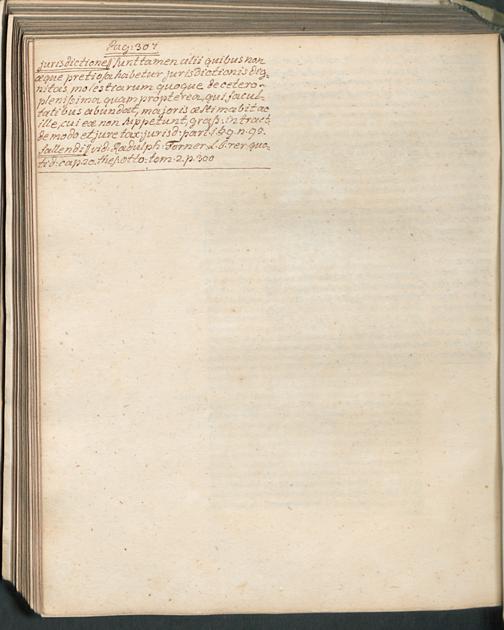 Pag: 307
jurisdictiones// sunt tamen alii quibus non
æque pretiosa habetur jurisdictionis dig=
nitas molestiarum quoque de cetero
plenissima quam propterea, qui facul=
tatibus abundat, majoris æstimabit ac
ille, cui eæ non suppetunt, grass: in tract:
de modo et jure tax: jurisd: part: 1. §. 9. n. 92.
fallendi// vid: Radulph: Forner: L. 6. rer: quo=
tid: cap: 20. thes: otto: tom: 2. p. 300